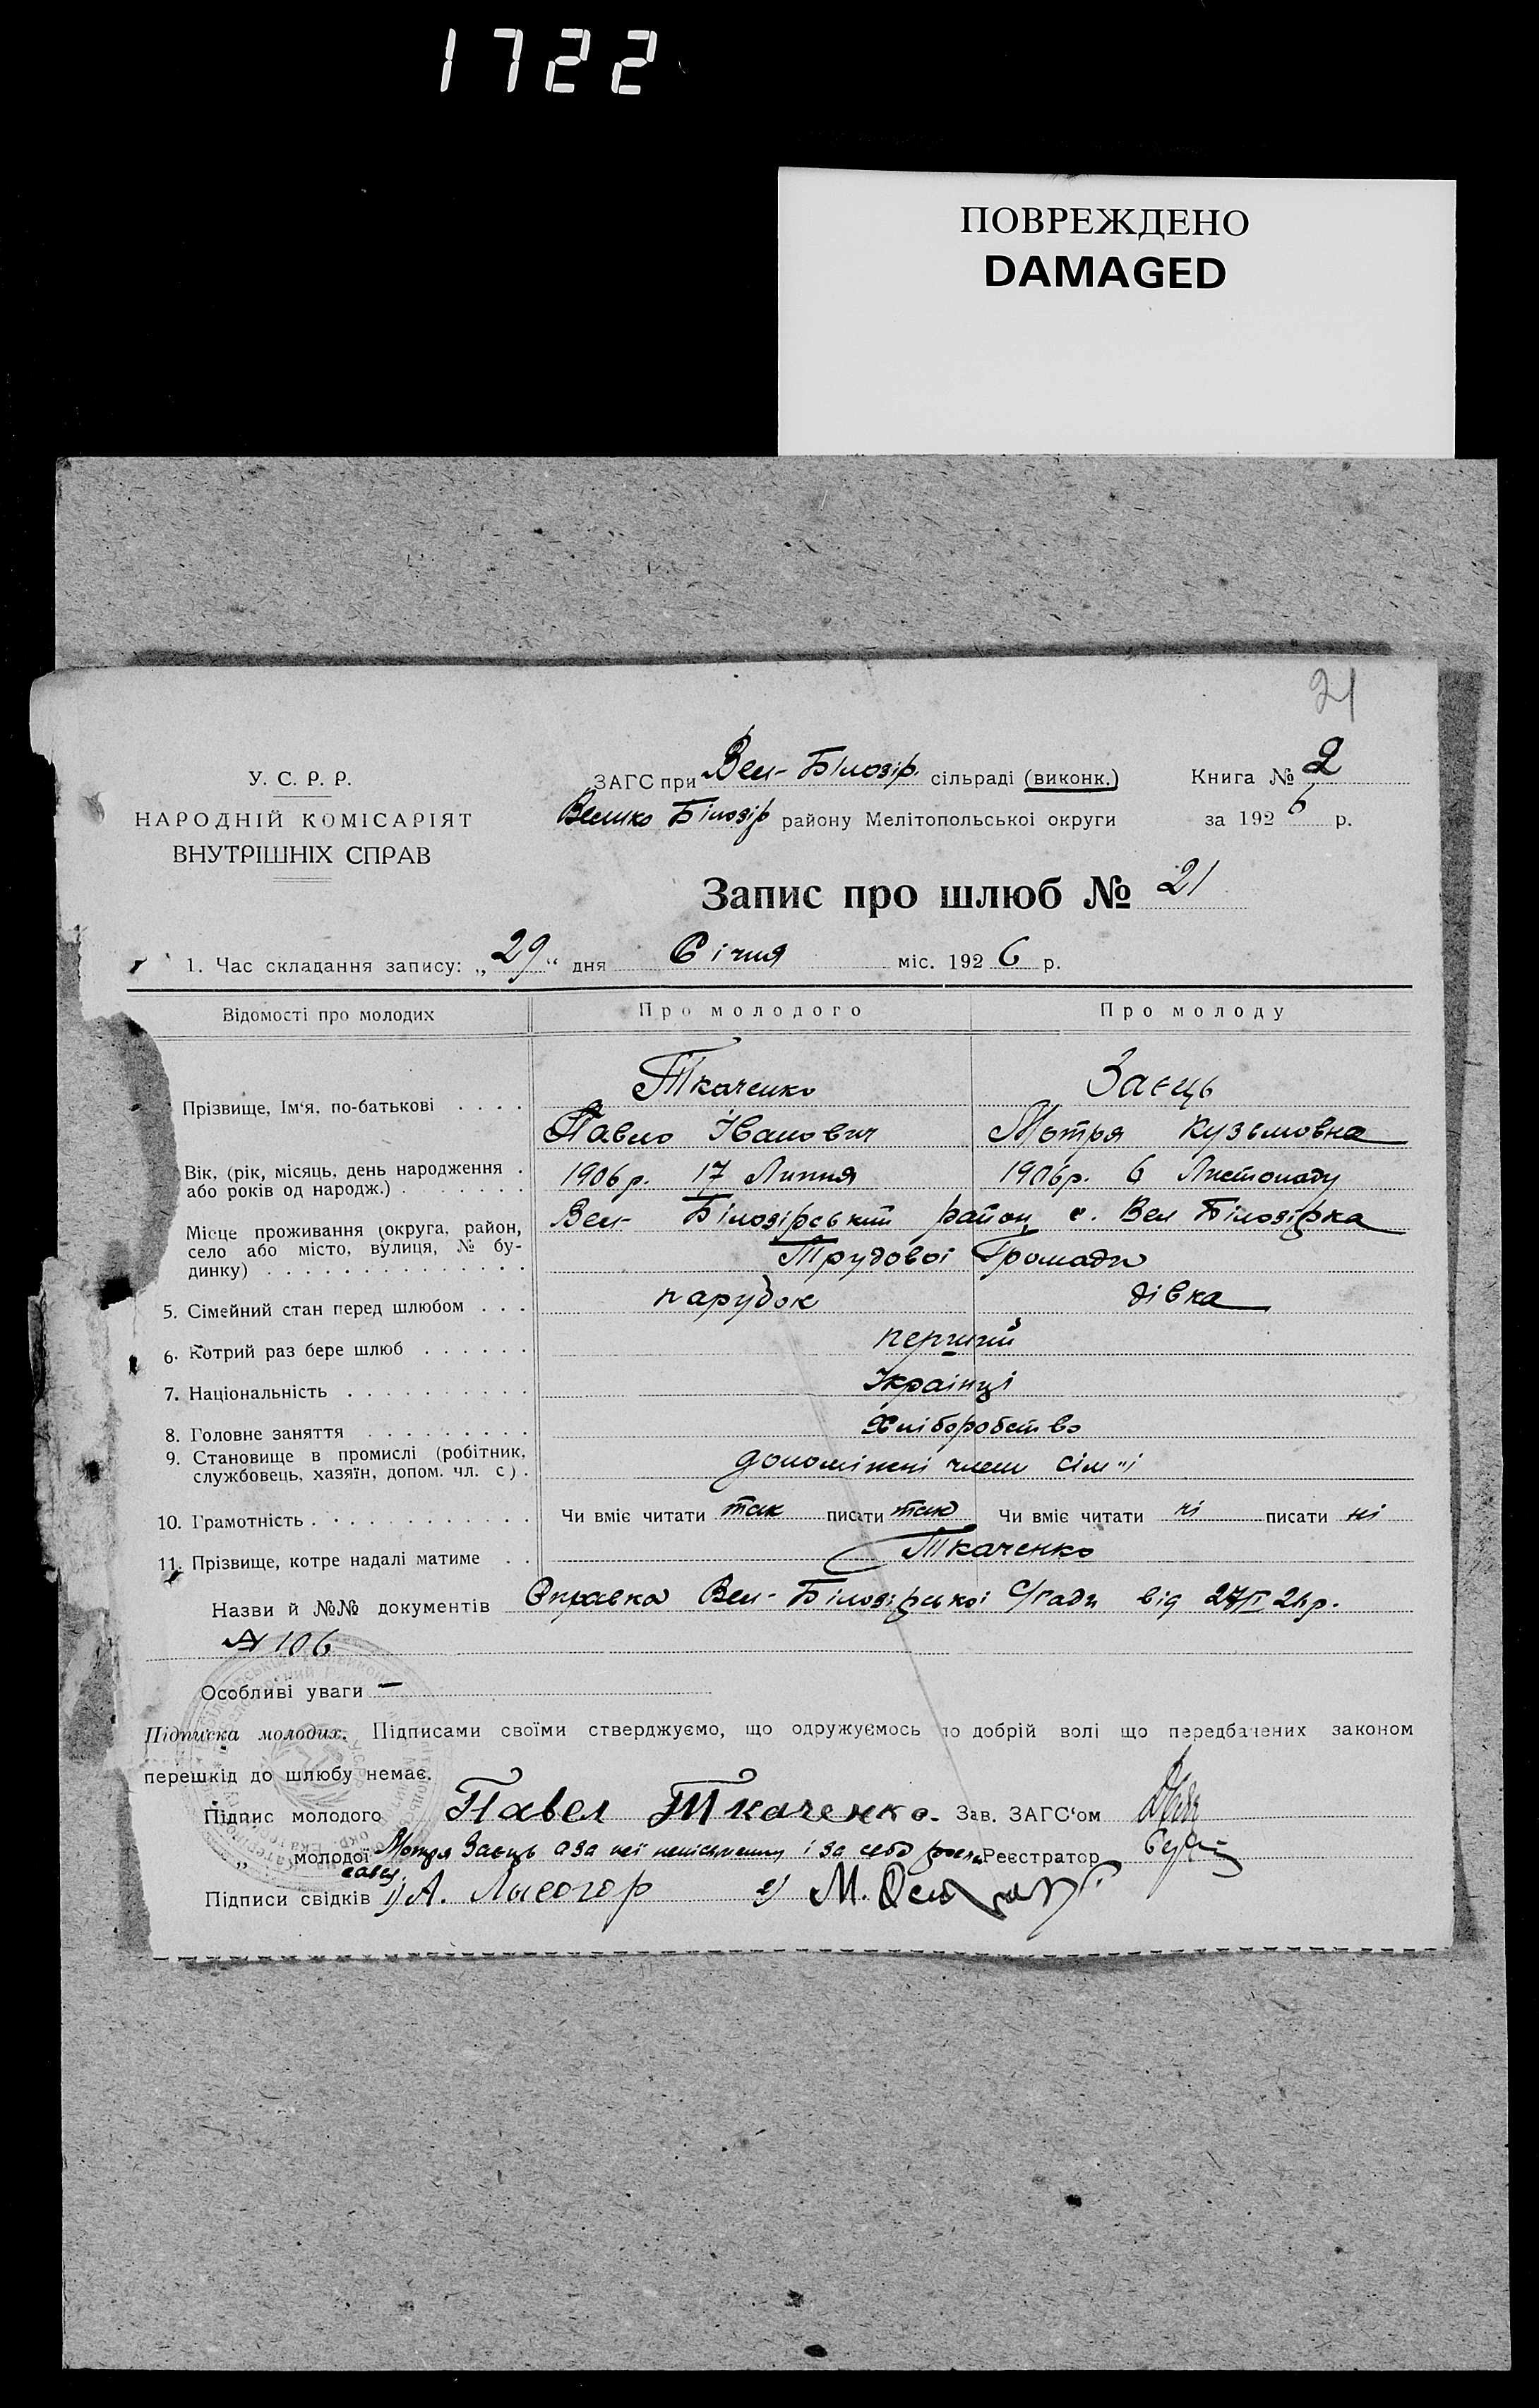 1722
ПОВРЕЖДЕНО
DAMAGED
21
У. С. Р. Р.
НАРОДНІЙ КОМІСАРІЯТ
ВНУТРІШНІХ СПРАВ
ЗАГС при Вел-Білозір. сільраді (виконк.)
Велико Білозір району Мелітопольської округи
Книга № 2
за 1926 р.
Запис про шлюб № 21
1. Час складання запису: „29“ дня Січня міс. 1926 р.
Відомості про молодих
Про молодого
Про молоду
Прізвище, Ім'я, по-батькові . . . .
Ткаченко
Заєць
Павло Іванович
Мотря Кузьмовна
Вік, (рік, місяць, день народження .
або років од народж.) . . . . . . .
1906 р. 17 Липня
1906 р. 6 Листопаду
Місце проживання (округа, район,
село або місто, вулиця, № бу-
динку) . . . . . . . . . . . . .
Вел- Білозірський район с. Вел Білозірка
Трудової Громади
5. Сімейний стан перед шлюбом . . .
парубок
дівка
6. Котрий раз бере шлюб . . . . . .
перший
7. Національність . . . . . . . . . .
Українці
8. Головне заняття . . . . . . . . .
Хліборобство
9. Становище в промислі (робітник,
службовець, хазяїн, допом. чл. с) .
допоміжні члени сім"ї
10. Грамотність . . . . . . . . . . .
Чи вміє читати так писати так
Чи вміє читати ні писати ні
11. Прізвище, котре надалі матиме . .
Ткаченко
Назви й №№ документів Справка Вел-Білозірської С/ради від 27/I 26 р.
№ 106
Особливі уваги —
Підписка молодих. Підписами своїми стверджуємо, що одружуємось по добрій волі що передбачених законом
перешкід до шлюбу немає.
Підпис молодого Павел Ткаченко. Зав. ЗАГС'ом
„ молодої Мотря Заєць а за неї неписьменну і за себе Реєстратор
Підписи свідків 1) А. Лысогор 2) М.